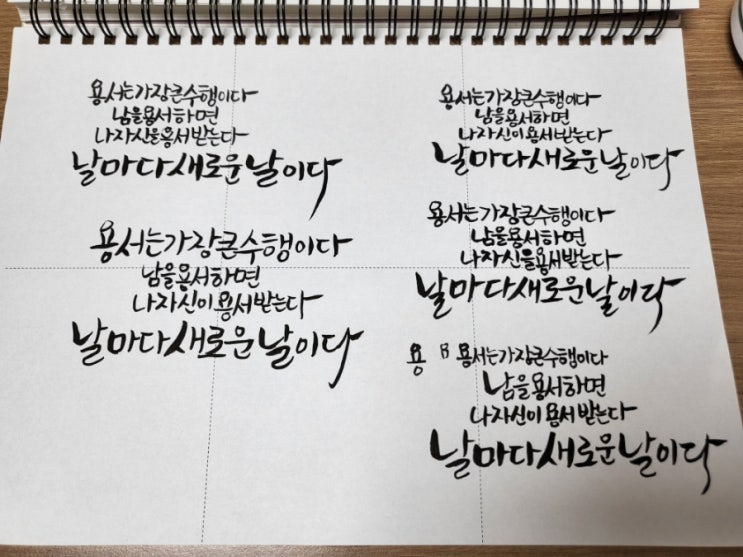 용서는가장큰수행이다
남을용서하면
나자신을용서받는다
날마다새로운날이다
용서는가장큰수행이다
남을용서하면
나자신이용서받는다
날마다새로운날이다
용서는가장큰수행이다
남을용서하면
나자신이용서받는다
날마다새로운날이다
용서는가장큰수행이다
남을용서하면
나자신을용서받는다
날마다새로운날이다
용 ㅂ 용서는가장큰수행이다
남을용서하면
나자신이용서받는다
날마다새로운날이다